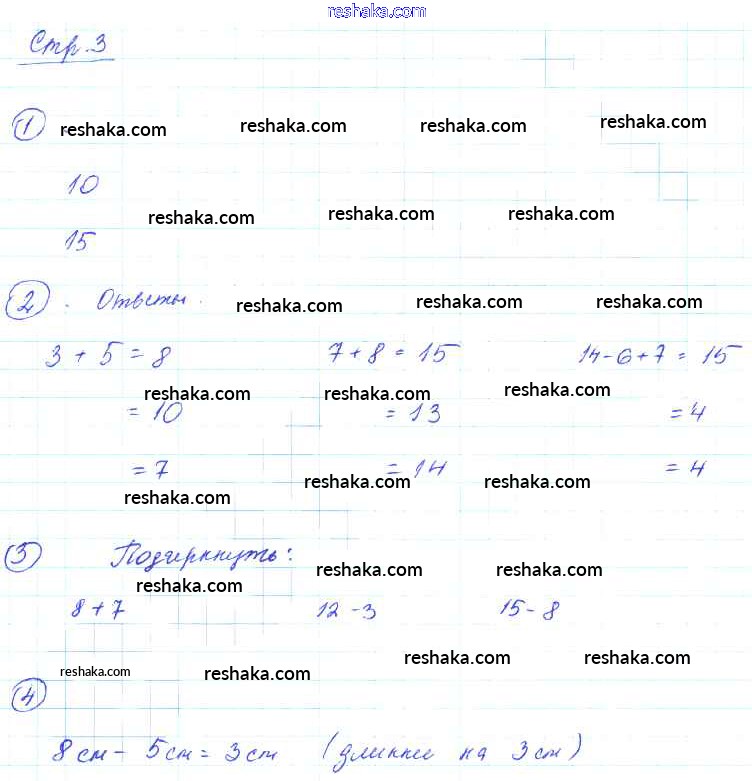 reshaka.com
Стр. 3
1 reshaka.com reshaka.com reshaka.com reshaka.com
10
reshaka.com reshaka.com reshaka.com
15
2. Ответы. reshaka.com reshaka.com reshaka.com
3 + 5 = 8 7 + 8 = 15 14 - 6 + 7 = 15
reshaka.com reshaka.com reshaka.com
= 10 = 13 = 4
= 7 = 14 = 4
reshaka.com reshaka.com reshaka.com
3 Подчеркнуть:
reshaka.com reshaka.com reshaka.com
8 + 7 12 - 3 15 - 8
reshaka.com reshaka.com reshaka.com reshaka.com
4
8 см - 5 см = 3 см (длиннее на 3 см)